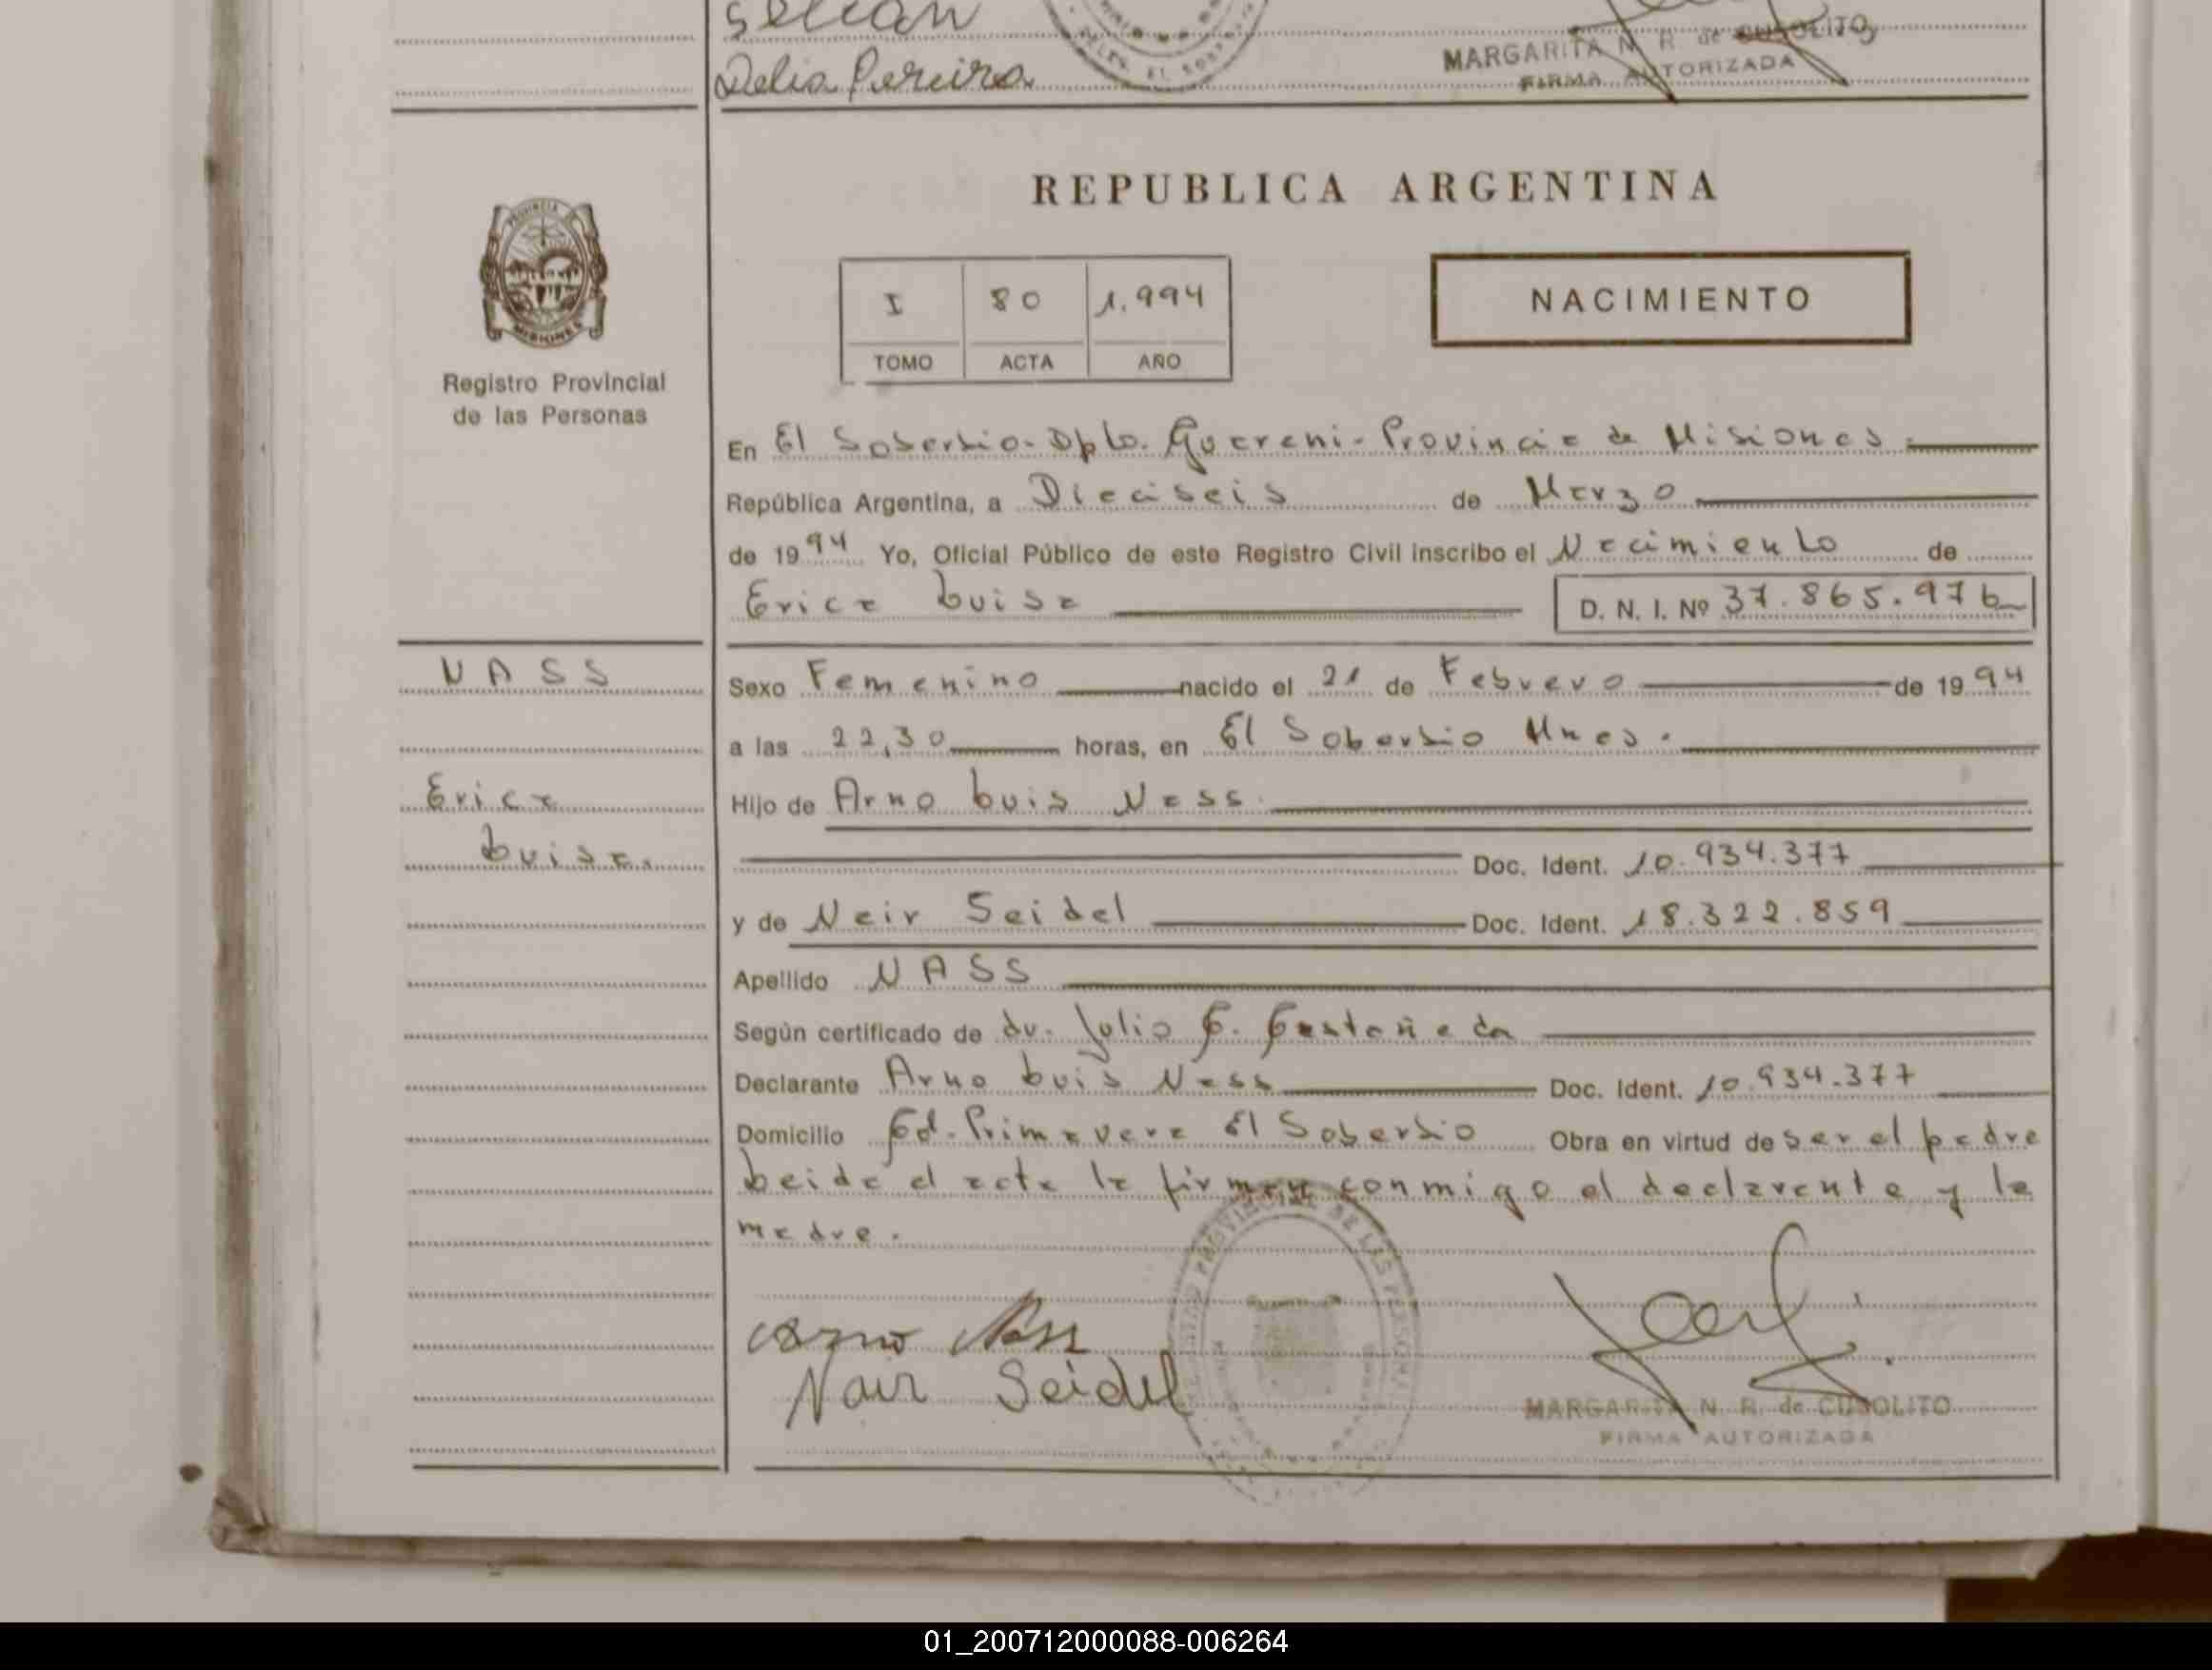 Selian
Delia Pereira
MARGARITA N. R. de CUSOLITO
FIRMA AUTORIZADA
REPUBLICA ARGENTINA
PROVINCIA DE
MISIONES
Registro Provincial
de las Personas
I 80 1.994
TOMO ACTA AÑO
NACIMIENTO
En El Soberbio - Dpto. Guarani - Provincia de Misiones.
República Argentina, a Dieciseis de Marzo
de 1994 Yo, Oficial Público de este Registro Civil inscribo el Nacimiento de
Erica Luisa D. N. I. Nº 37.865.976
NASS
Erica
Luisa.
Sexo Femenino nacido el 21 de Febrero de 1994
a las 22,30 horas, en El Soberbio Mnes.
Hijo de Arno Luis Nass
Doc. Ident. 10.934.377
y de Neir Seidel Doc. Ident. 18.322.859
Apellido NASS
Según certificado de dr. Julio C. Castañeda
Declarante Arno Luis Nass Doc. Ident. 10.934.377
Domicilio Cd. Primavera El Soberbio Obra en virtud de ser el padre
Leida el acta la firman conmigo el declarante y la
madre.
Arno Nass
Nair Seidel
MARGARITA N. R. de CUSOLITO
FIRMA AUTORIZADA
01_200712000088-006264